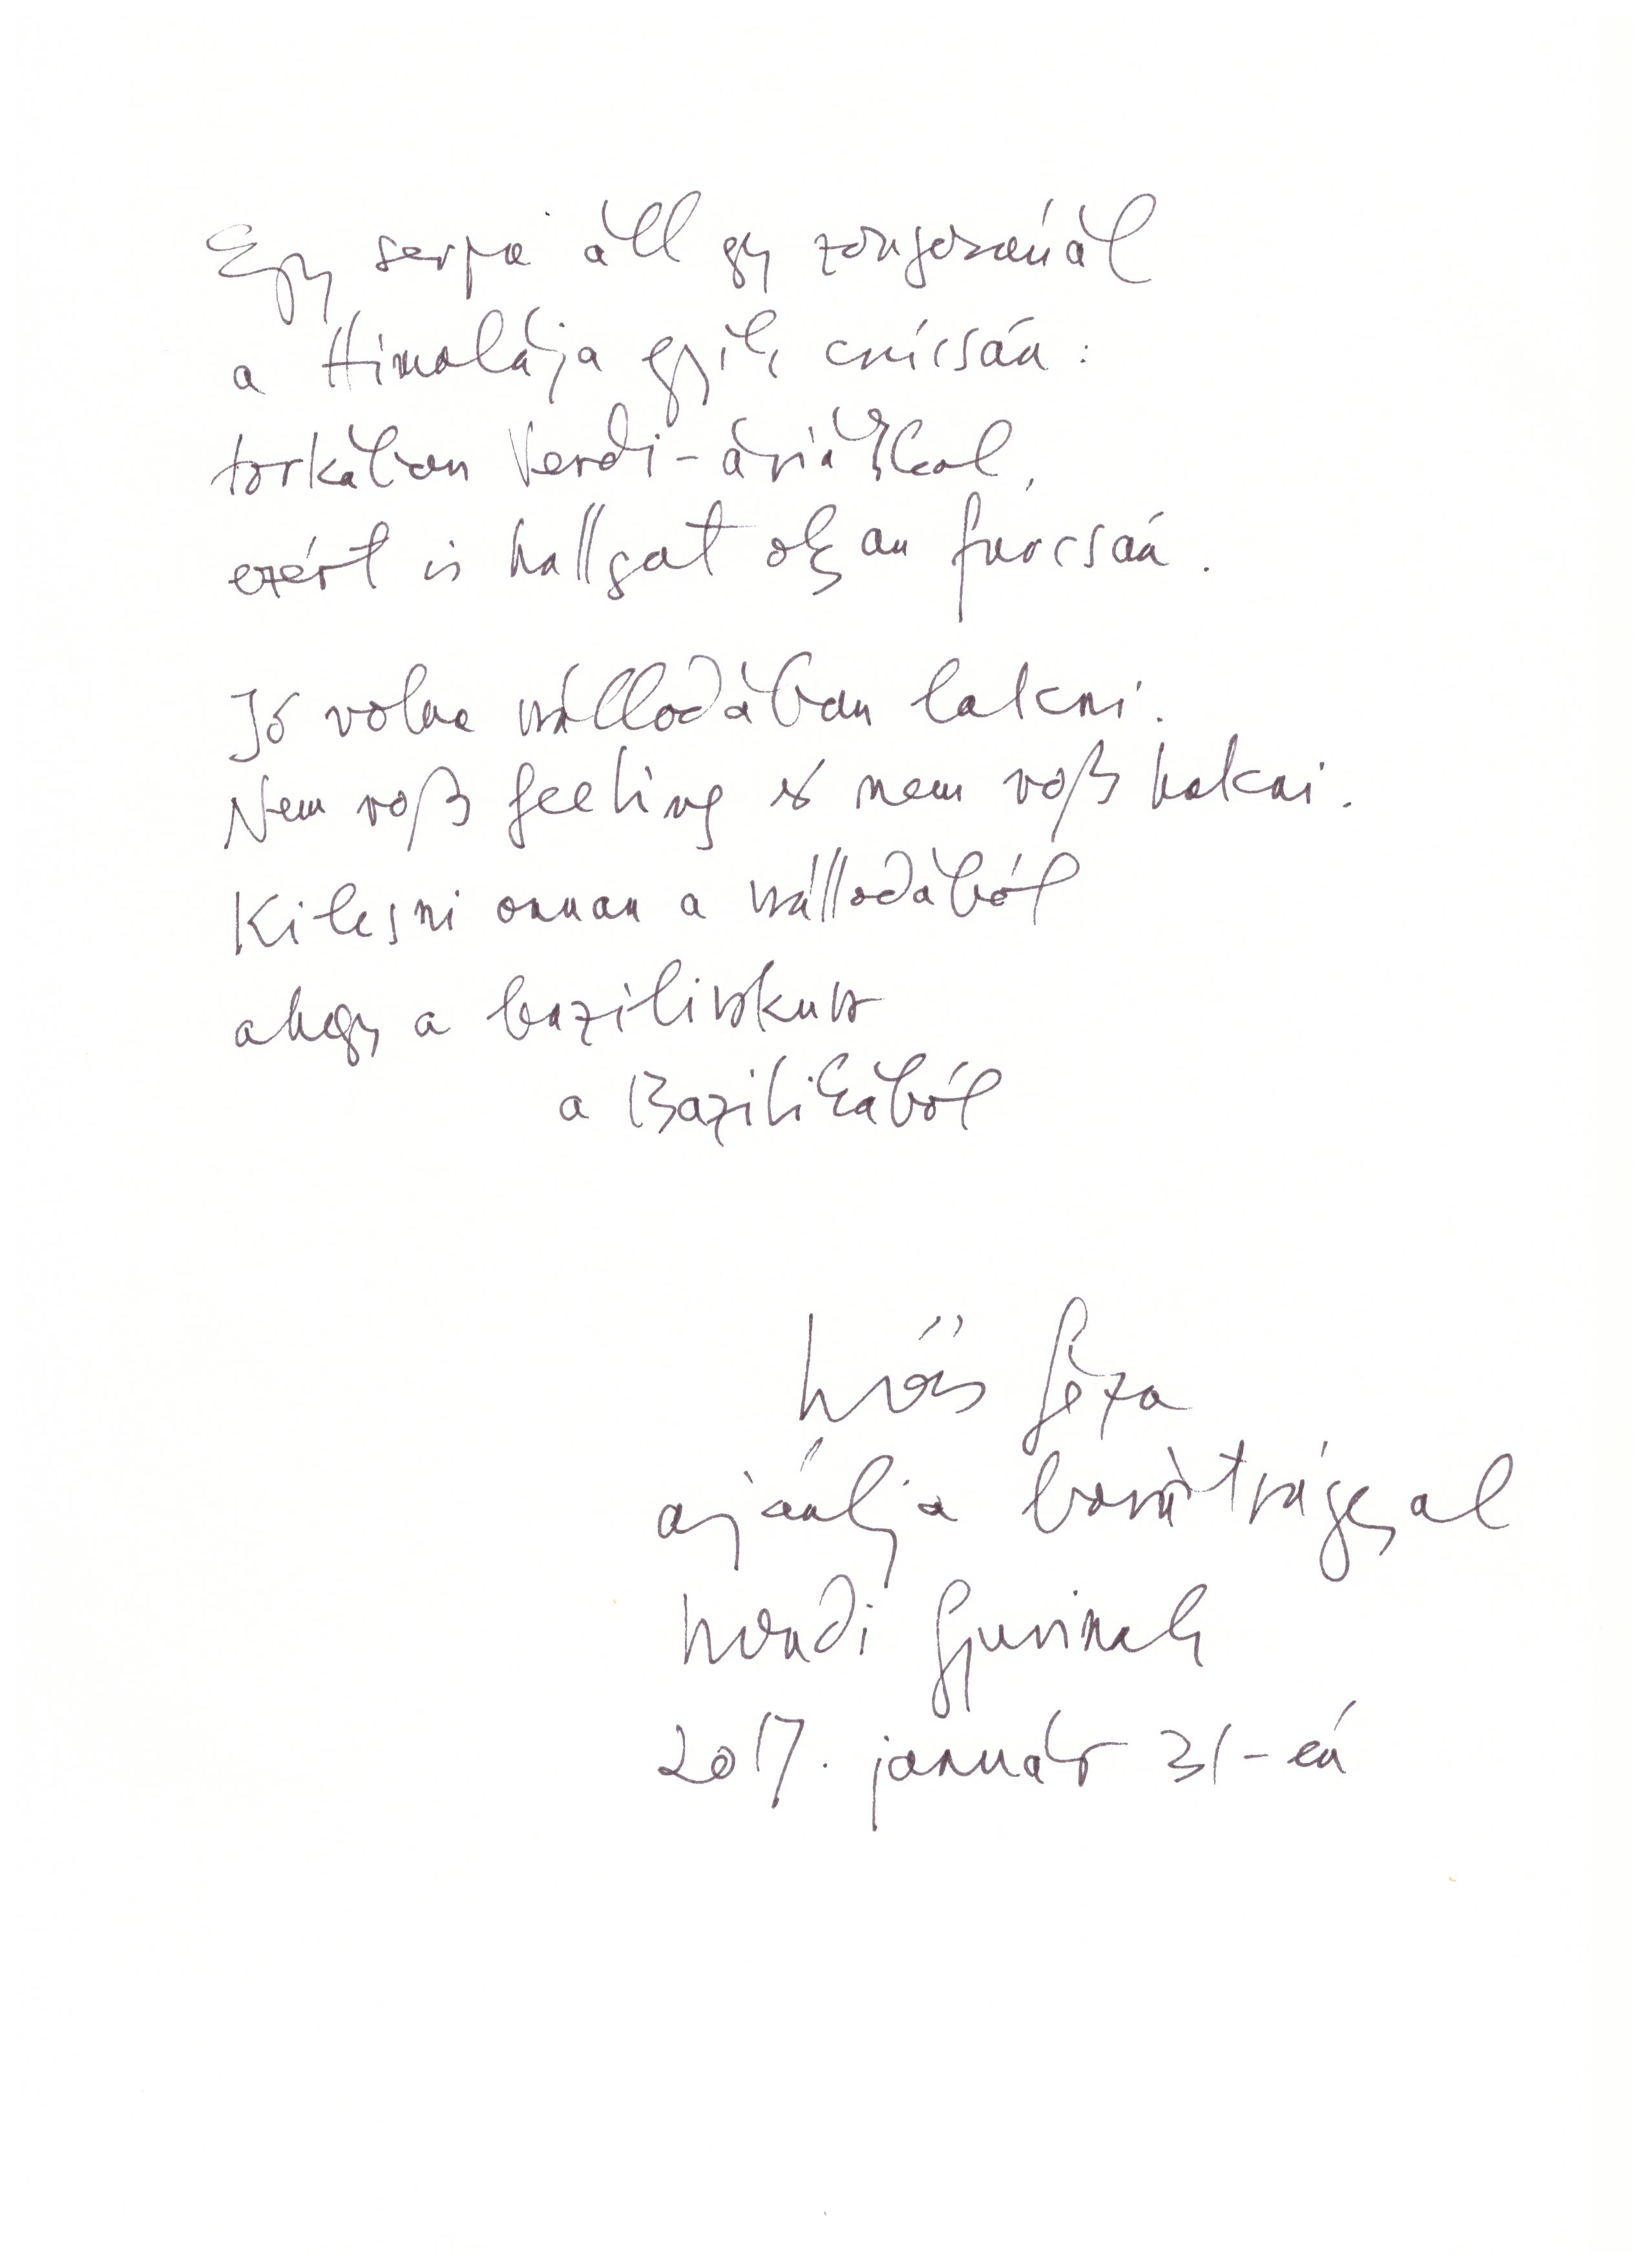 Egy serpa áll egy zongoránál
a Himalája egyik csúcsán:
torkában Verdi-áriákkal,
ezért is hallgat olyan furcsán.
Jó volna szállodában lakni.
Nem rossz feeling és nem rossz hakni.
Kilesni onnan a szállodából
ahogy a baziliszkusz
a Bazilikából
Szőcs Géza
ajánlja barátsággal
Szondi Gyurinak
2017. január 31-én